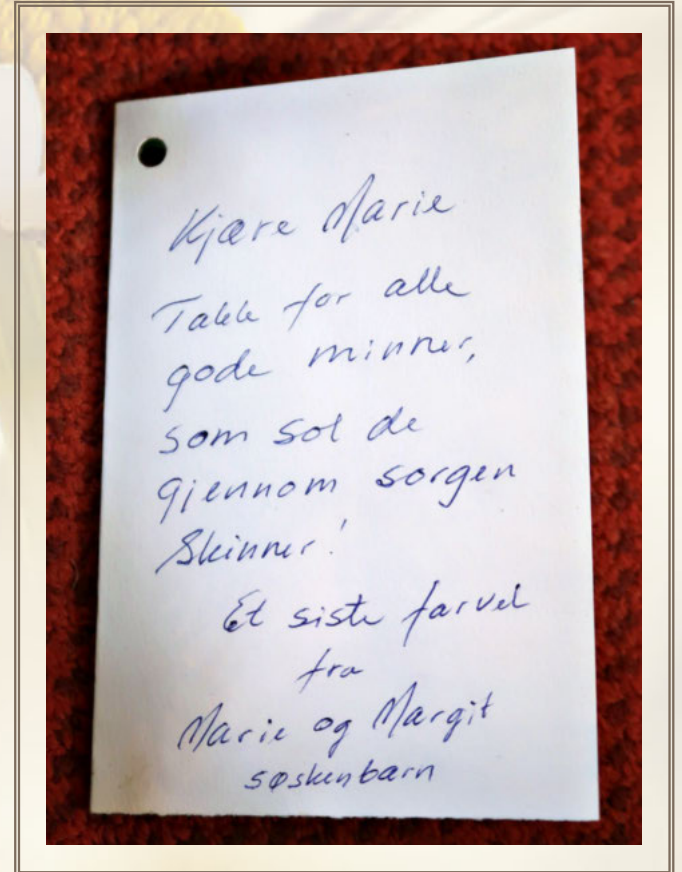 Kjære Marie
Takk for alle
gode minner,
som sol de
gjennom sorgen
Skinner!
Et siste farvel
fra
Marie og Margit
søskenbarn